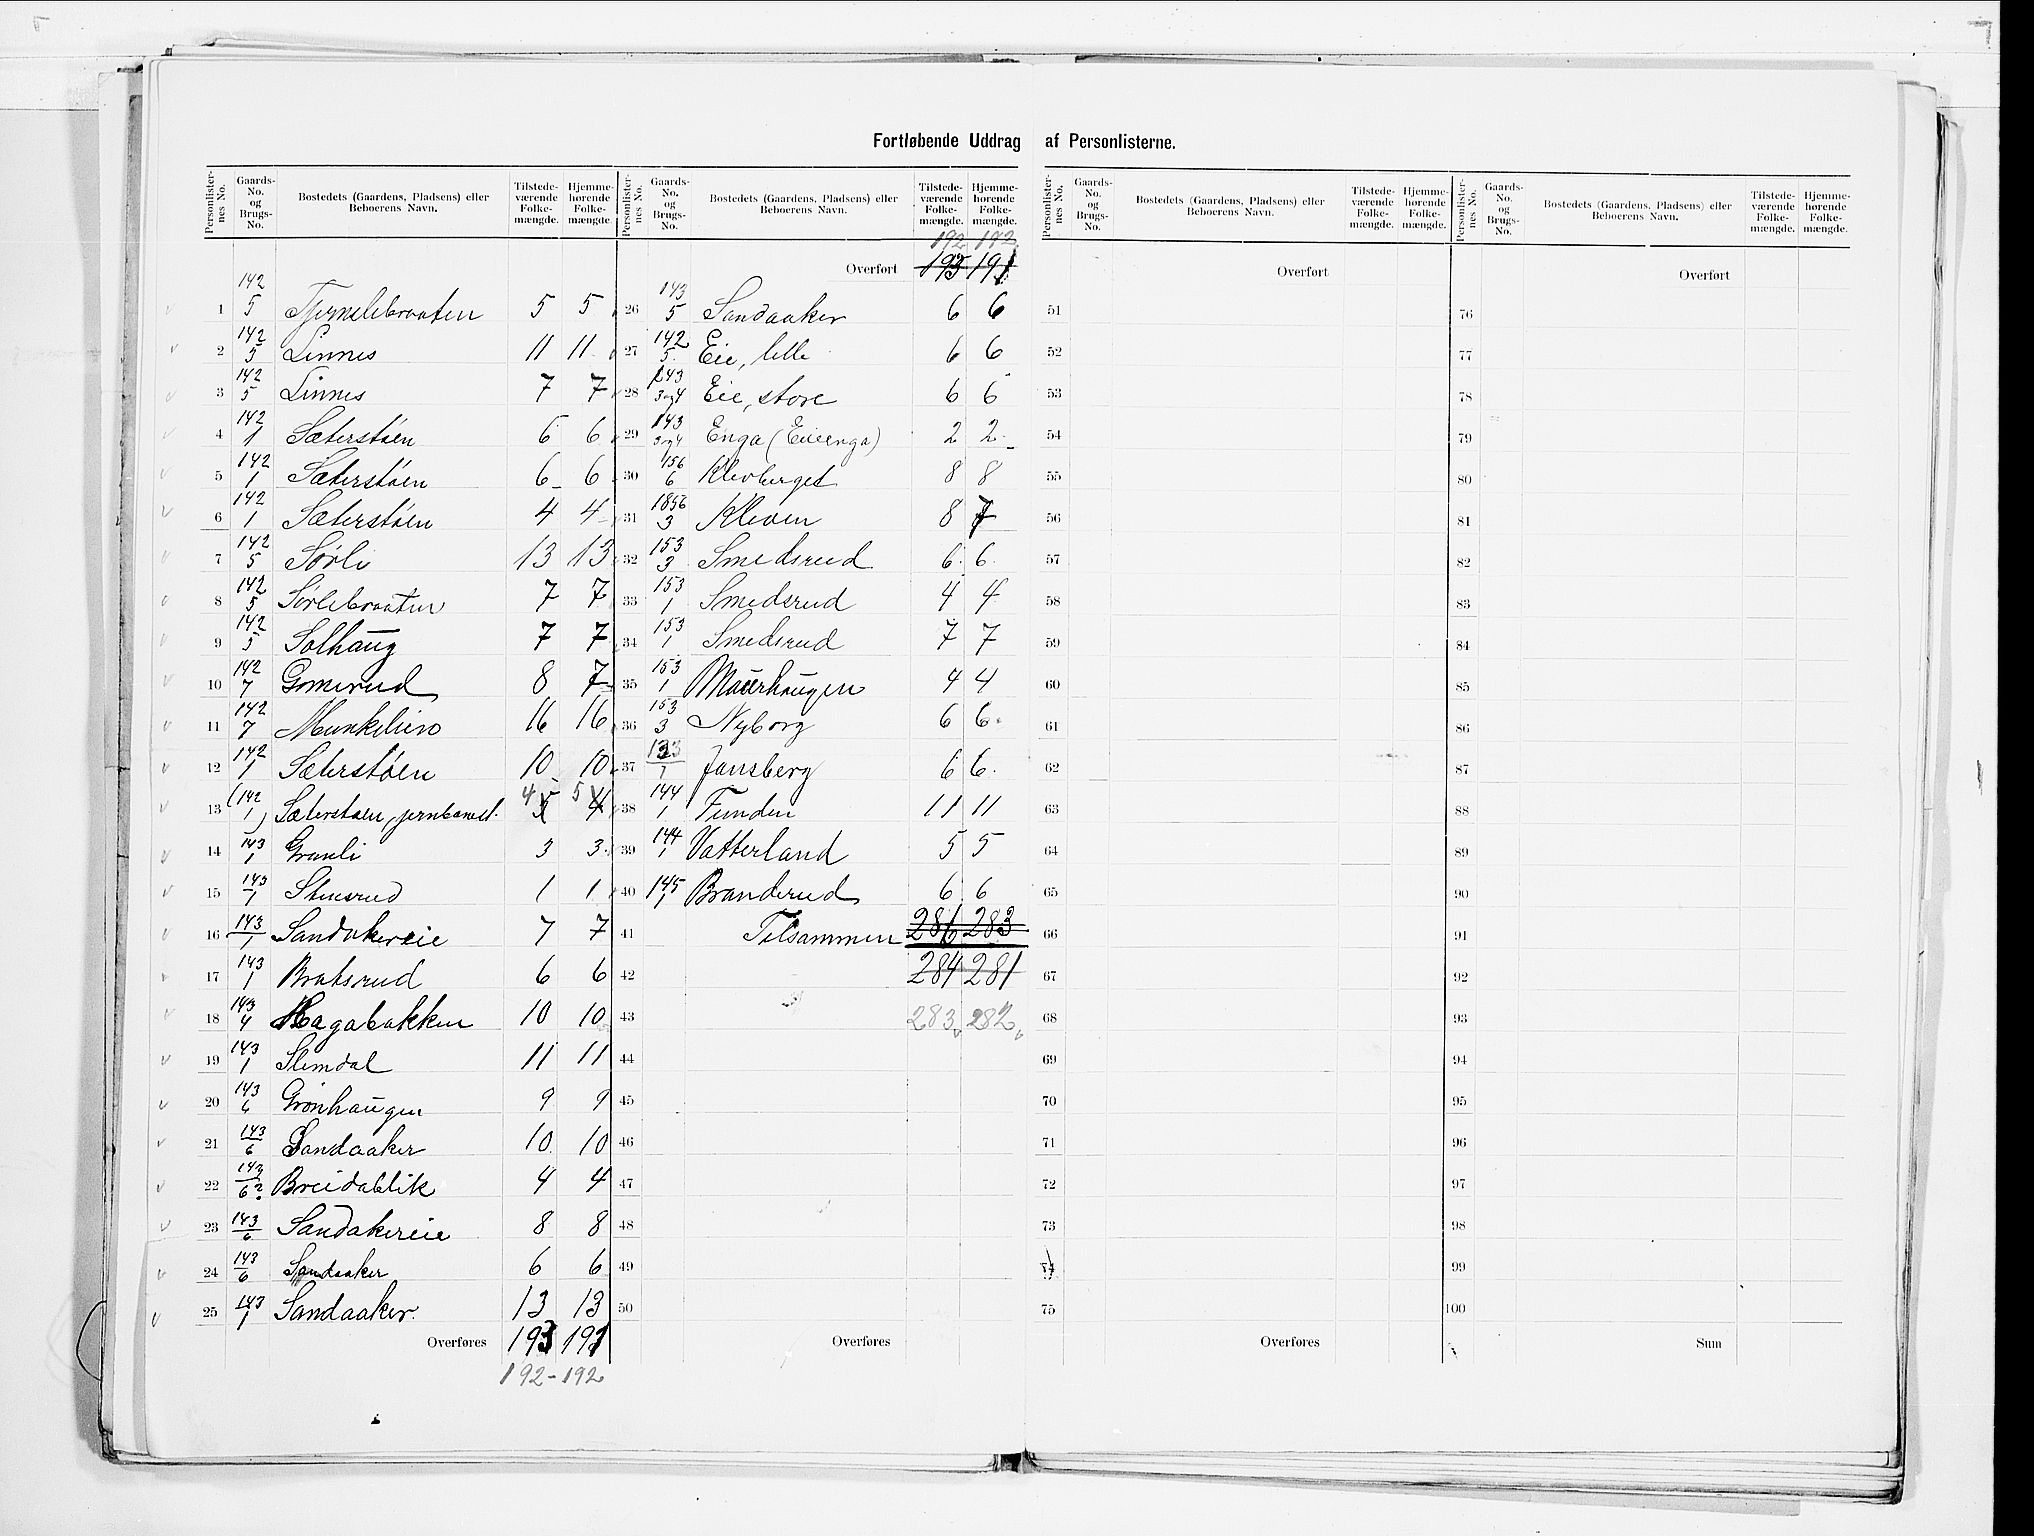 Fortløbende Uddrag af Personlisterne.
Personlister-nes No. Gaards-No. og Brugs-No. Bostedets (Gaardens, Pladsens) eller Beboerens Navn. Tilstede-værende Folke-mængde. Hjemme-hørende Folke-mængde.
1 142/5 Tjernslibraaten 5 5
2 142/5 Linnes 11 11
3 142/5 Linnes 7 7
4 142/1 Sæterstøen 6 6
5 142/1 Sæterstøen 6 6
6 142/1 Sæterstøen 4 4
7 142/5 Sørli 13 13
8 142/5 Sørlibraaten 7 7
9 142/5 Solhaug 7 7
10 142/7 Gomerud 8 7
11 142/7 Munkelien 16 16
12 142/1 Sæterstøen 10 10
13 (142/1) Sæterstøen, jernbanest. 4 5 5 4
14 143/1 Granli 3 3
15 143/1 Stensrud 1 1
16 143/1 Sandakereie 7 7
17 143/1 Bratsrud 6 6
18 143/4 Hagabakken 10 10
19 143/1 Slemdal 11 11
20 143/6 Grønhaugen 9 9
21 143/6 Sandaaker 10 10
22 143/6? Breidablik 4 4
23 143/6 Sandakereie 8 8
24 143/6 Sandaaker 6 6
25 143/1 Sandaaker. 13 13
Overføres 193 191
192 - 192
Personlister-nes No. Gaards-No. og Brugs-No. Bostedets (Gaardens, Pladsens) eller Beboerens Navn. Tilstede-værende Folke-mængde. Hjemme-hørende Folke-mængde.
192 182
Overført 193 191
26 143/5 Sandaaker 6 6
27 142/5. Eie, lille 6 6
28 143/3og4 Eie, store 6 6
29 143/3og4 Enga (Eieenga) 2 2
30 156/6 Klevberget 8 8
31 1856/3 Kleven 8 7
32 153/3 Smedsrud 6 6
33 153/1 Smedsrud 4 4
34 153/1 Smedsrud 7 7
35 153/1 Maurhaugen 4 4
36 153/3 Nyborg 6 6
37 Jansberg 6 6
38 144/1 Funden 11 11
39 144/1 Vatterland 5 5
40 145/1 Branderud 6 6
41 Tilsammen 286 283
42 284 281
43 283 282
44
45
46
47
48
49
50
Overføres
Personlister-nes No. Gaards-No. og Brugs-No. Bostedets (Gaardens, Pladsens) eller Beboerens Navn. Tilstede-værende Folke-mængde. Hjemme-hørende Folke-mængde.
Overført
51
52
53
54
55
56
57
58
59
60
61
62
63
64
65
66
67
68
69
70
71
72
73
74
75
Overføres
Personlister-nes No. Gaards-No. og Brugs-No. Bostedets (Gaardens, Pladsens) eller Beboerens Navn. Tilstede-værende Folke-mængde. Hjemme-hørende Folke-mængde.
Overført
76
77
78
79
80
81
82
83
84
85
86
87
88
89
90
91
92
93
94
95
96
97
98
99
100
Sum